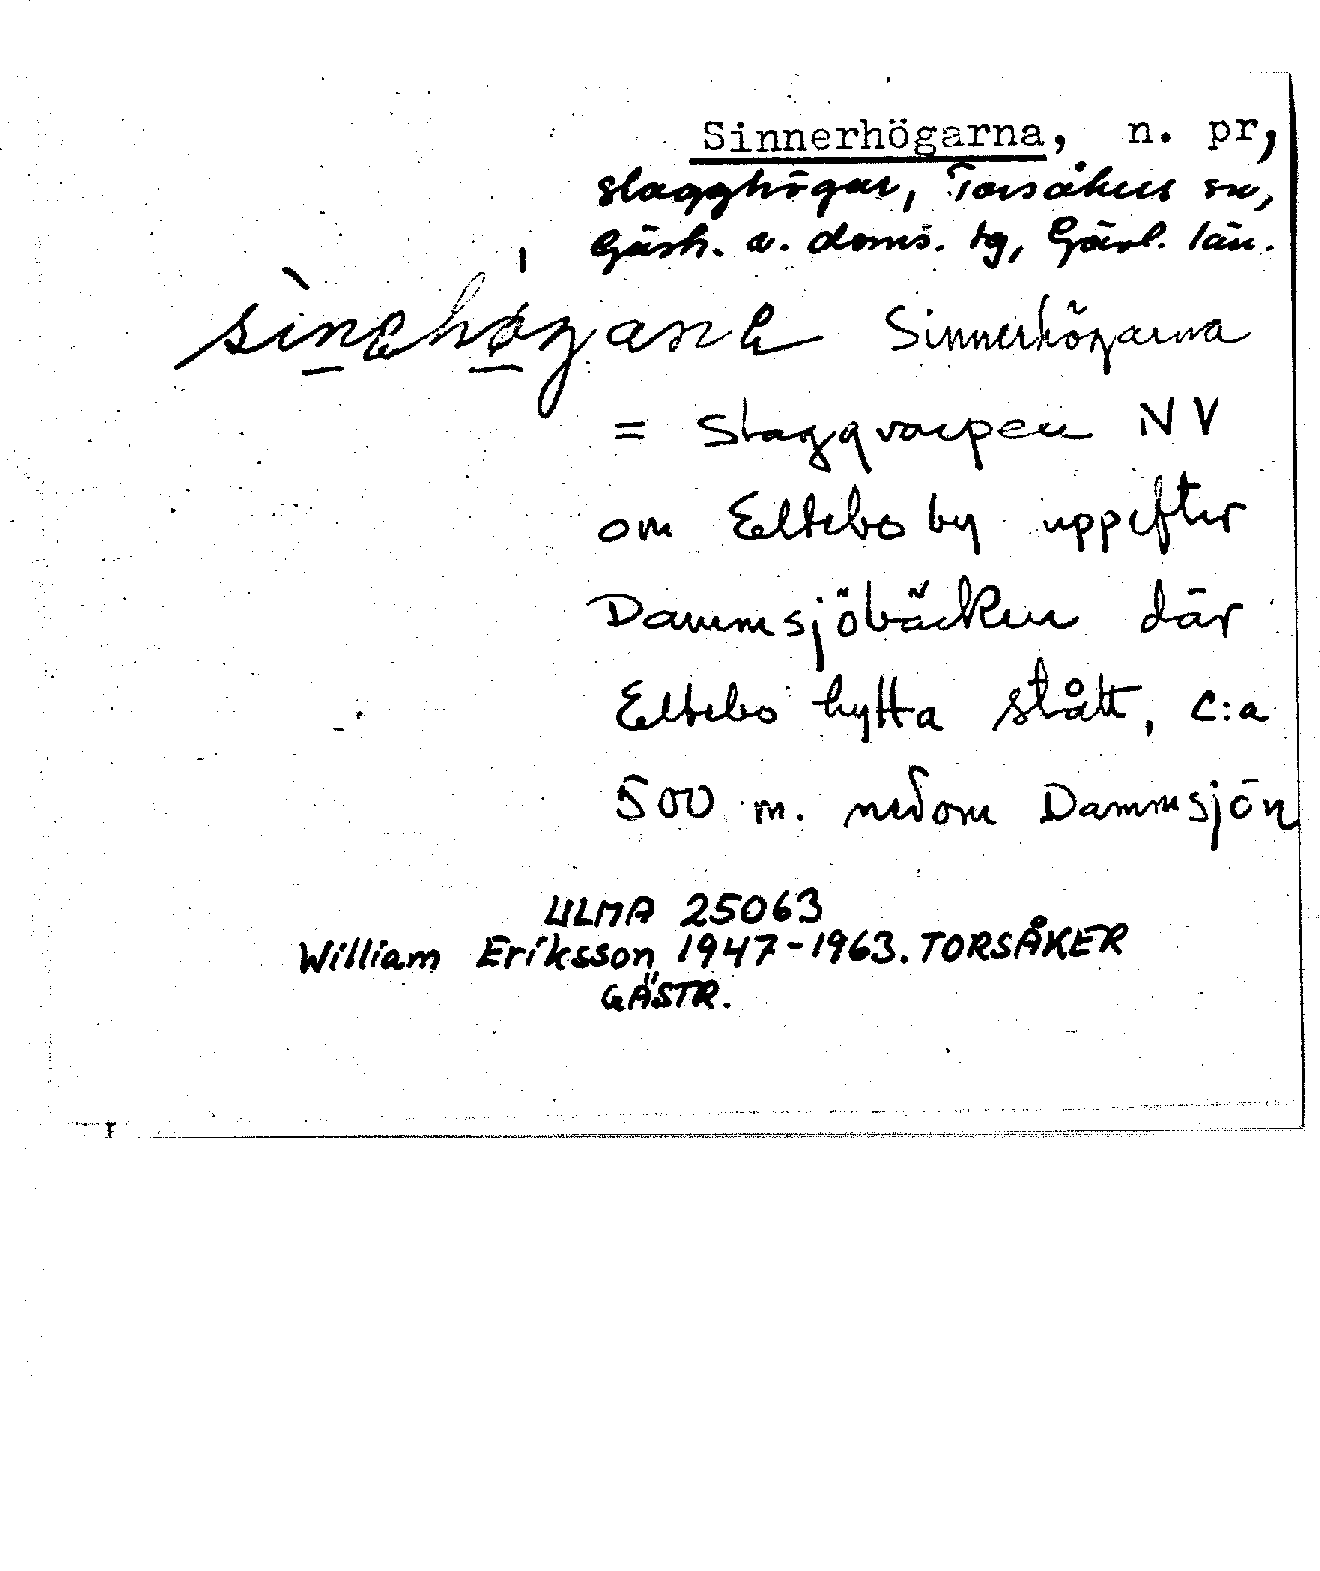 Sinnerhögarna, n. pr,
slagghögar, Torsåkers sn,
Gästr. ö. doms. tg, Gävl. län.
Sinnerhögarna
= slaggvarpen NV
om Eltebo by uppefter
Dammsjöbäcken där
Eltebo hytta stått, c:a
500 m. nedom Dammsjön
ULMA 25063
William Eriksson 1947-1963. TORSÅKER
GÄSTR.